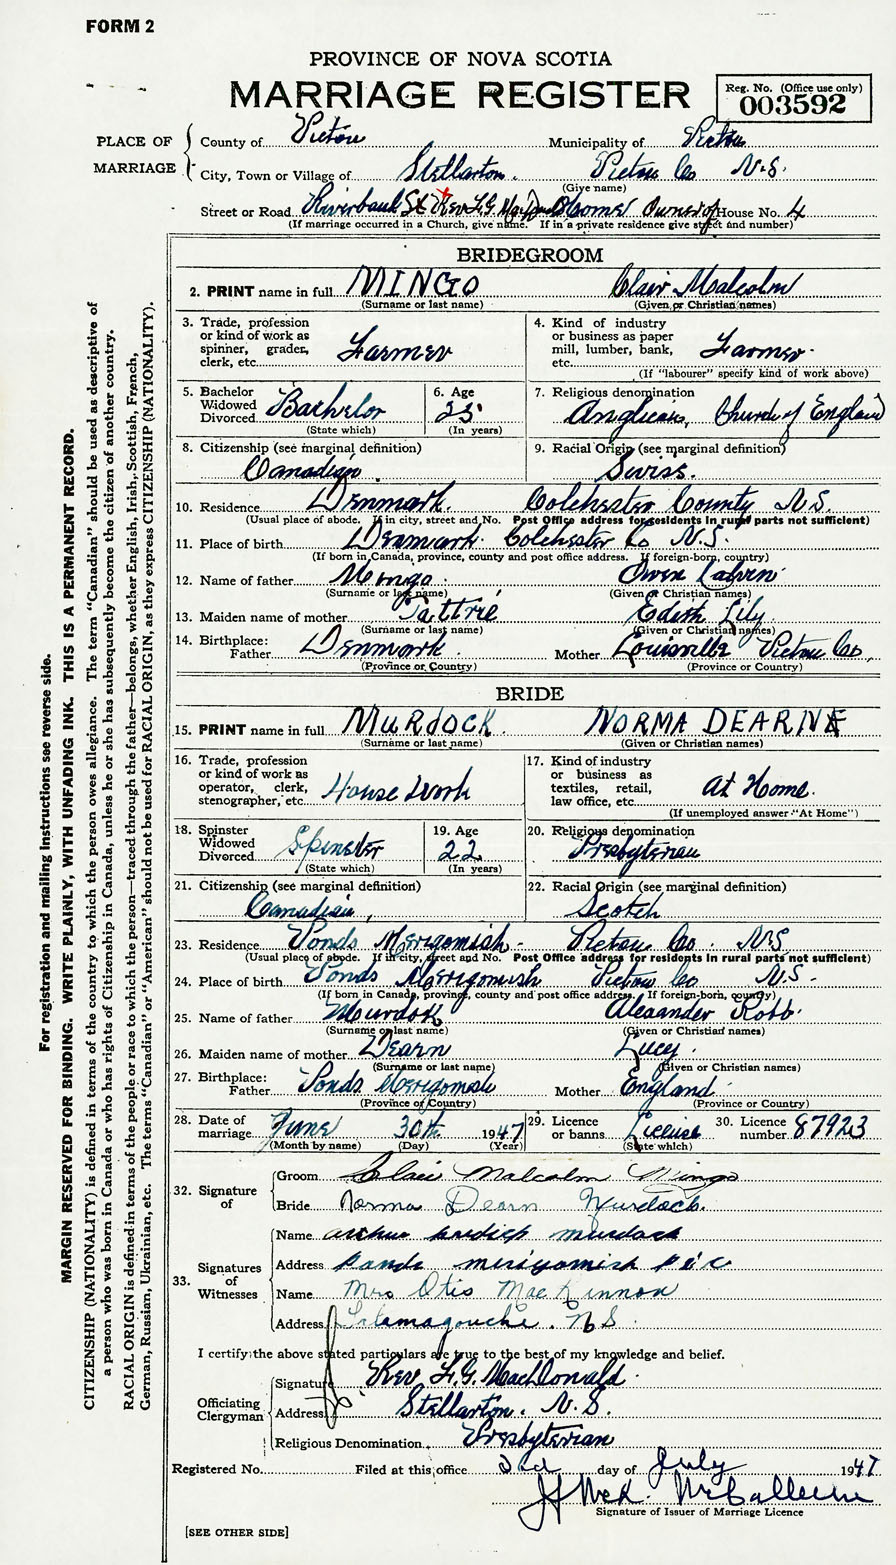 FORM 2
PROVINCE OF NOVA SCOTIA
MARRIAGE REGISTER
Reg. No. (Office use only)
003592
PLACE OF MARRIAGE
County of Pictou Municipality of Pictou
City, Town or Village of Stellarton. Pictou Co N.S.
(Give name)
Street or Road Riverbank St Rev F.G. Home Owner of House No. 4
(If marriage occurred in a Church, give name. If in a private residence give street and number)
BRIDEGROOM
2. PRINT name in full MINGO Clair Malcolm
(Surname or last name) (Given or Christian names)
3. Trade, profession or kind of work as spinner, grader, clerk, etc. Farmer
4. Kind of industry or business as paper mill, lumber, bank, etc. Farmer
(If "labourer" specify kind of work above)
5. Bachelor Widowed Divorced Bachelor
(State which)
6. Age 25
(In years)
7. Religious denomination
Anglican, Church of England
8. Citizenship (see marginal definition)
Canadian
9. Racial Origin (see marginal definition)
Swiss.
10. Residence Denmark. Colchester County N.S.
(Usual place of abode. If in city, street and No. Post Office address for residents in rural parts not sufficient)
11. Place of birth Denmark. Colchester Co N.S.
(If born in Canada, province, county and post office address. If foreign-born, country)
12. Name of father Mingo Owen Calvin
(Surname or last name) (Given or Christian names)
13. Maiden name of mother Tattrie Edith Lily
(Surname or last name) (Given or Christian names)
14. Birthplace: Father Denmark. Mother Louisville Pictou Co.
(Province or Country) (Province or Country)
BRIDE
15. PRINT name in full MURDOCK. NORMA DEARNE
(Surname or last name) (Given or Christian names)
16. Trade, profession or kind of work as operator, clerk, stenographer, etc. House Work
17. Kind of industry or business as textiles, retail, law office, etc. At Home.
(If unemployed answer "At Home")
18. Spinster Widowed Divorced Spinster
(State which)
19. Age 22
(In years)
20. Religious denomination
Presbyterian
21. Citizenship (see marginal definition)
Canadian,
22. Racial Origin (see marginal definition)
Scotch
23. Residence Ponds Merigomish - Pictou Co. N.S
(Usual place of abode. If in city, street and No. Post Office address for residents in rural parts not sufficient)
24. Place of birth Ponds Merigomish Pictou Co N.S.
(If born in Canada, province, county and post office address. If foreign-born, country)
25. Name of father Murdock Alexander Robb.
(Surname or last name) (Given or Christian names)
26. Maiden name of mother Dearn Lucy.
(Surname or last name) (Given or Christian names)
27. Birthplace: Father Ponds Merigomish Mother England.
(Province or Country) (Province or Country)
28. Date of marriage June 30th 1947
(Month by name) (Day) (Year)
29. Licence or banns License
(State which)
30. Licence number 87923
32. Signature of
Groom Clair Malcolm Mingo
Bride Norma Dearn Murdock.
33. Signatures of Witnesses
Name Arthur murdock
Address ponds merigomish
Name Mrs Otis MacKinnon
Address Tatamagouche. N.S.
I certify the above stated particulars are true to the best of my knowledge and belief.
Officiating Clergyman
Signature Rev F.G. MacDonald.
Address Stellarton. N.S.
Religious Denomination Presbyterian
Registered No. Filed at this office 3rd day of July 1947
Signature of Issuer of Marriage Licence
[SEE OTHER SIDE]
For registration and mailing instructions see reverse side.
MARGIN RESERVED FOR BINDING. WRITE PLAINLY, WITH UNFADING INK. THIS IS A PERMANENT RECORD.
CITIZENSHIP (NATIONALITY) is defined in terms of the country to which the person owes allegiance. The term "Canadian" should be used as descriptive of
a person who was born in Canada or who has rights of Citizenship in Canada, unless he or she has subsequently become the citizen of another country.
RACIAL ORIGIN is defined in terms of the people or race to which the person—traced through the father—belongs, whether English, Irish, Scottish, French,
German, Russian, Ukrainian, etc. The terms "Canadian" or "American" should not be used for RACIAL ORIGIN, as they express CITIZENSHIP (NATIONALITY).